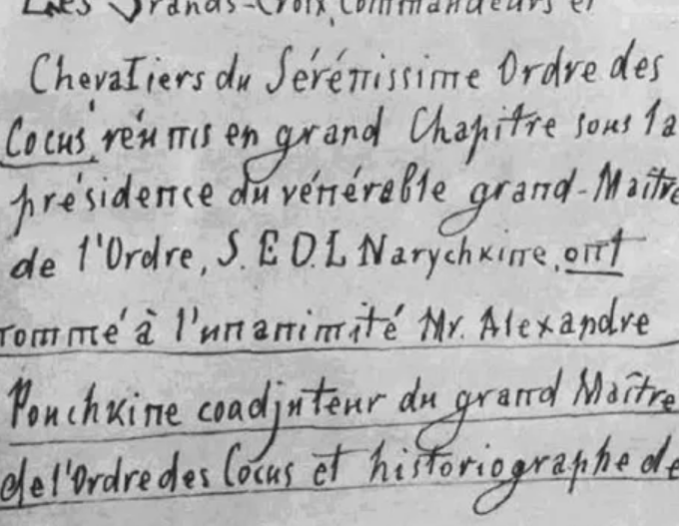 Les Grands-Croix, Commandeurs et
Chevaliers du Sérénissime Ordre des
Cocus, réunis en grand Chapitre sous la
présidence du vénérable grand-Maître
de l'Ordre, S. E. D. L Narychkine, ont
nommé à l'unanimité Mr. Alexandre
Pouchkine coadjuteur du grand Maître
de l'Ordre des Cocus et historiographe de